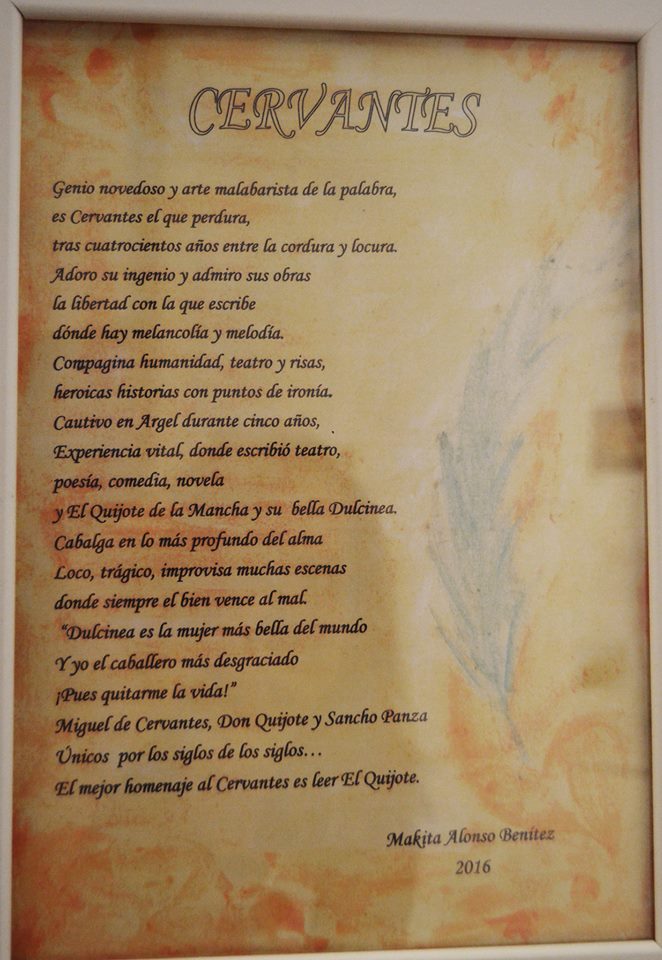 CERVANTES
Genio novedoso y arte malabarista de la palabra,
es Cervantes el que perdura,
tras cuatrocientos años entre la cordura y locura.
Adoro su ingenio y admiro sus obras
la libertad con la que escribe
dónde hay melancolía y melodía.
Compagina humanidad, teatro y risas,
heroicas historias con puntos de ironía.
Cautivo en Argel durante cinco años,
Experiencia vital, donde escribió teatro,
poesía, comedia, novela
y El Quijote de la Mancha y su bella Dulcinea.
Cabalga en lo más profundo del alma
Loco, trágico, improvisa muchas escenas
donde siempre el bien vence al mal.
“Dulcinea es la mujer más bella del mundo
Y yo el caballero más desgraciado
¡Pues quitarme la vida!”
Miguel de Cervantes, Don Quijote y Sancho Panza
Únicos por los siglos de los siglos…
El mejor homenaje al Cervantes es leer El Quijote.
Makita Alonso Benítez
2016